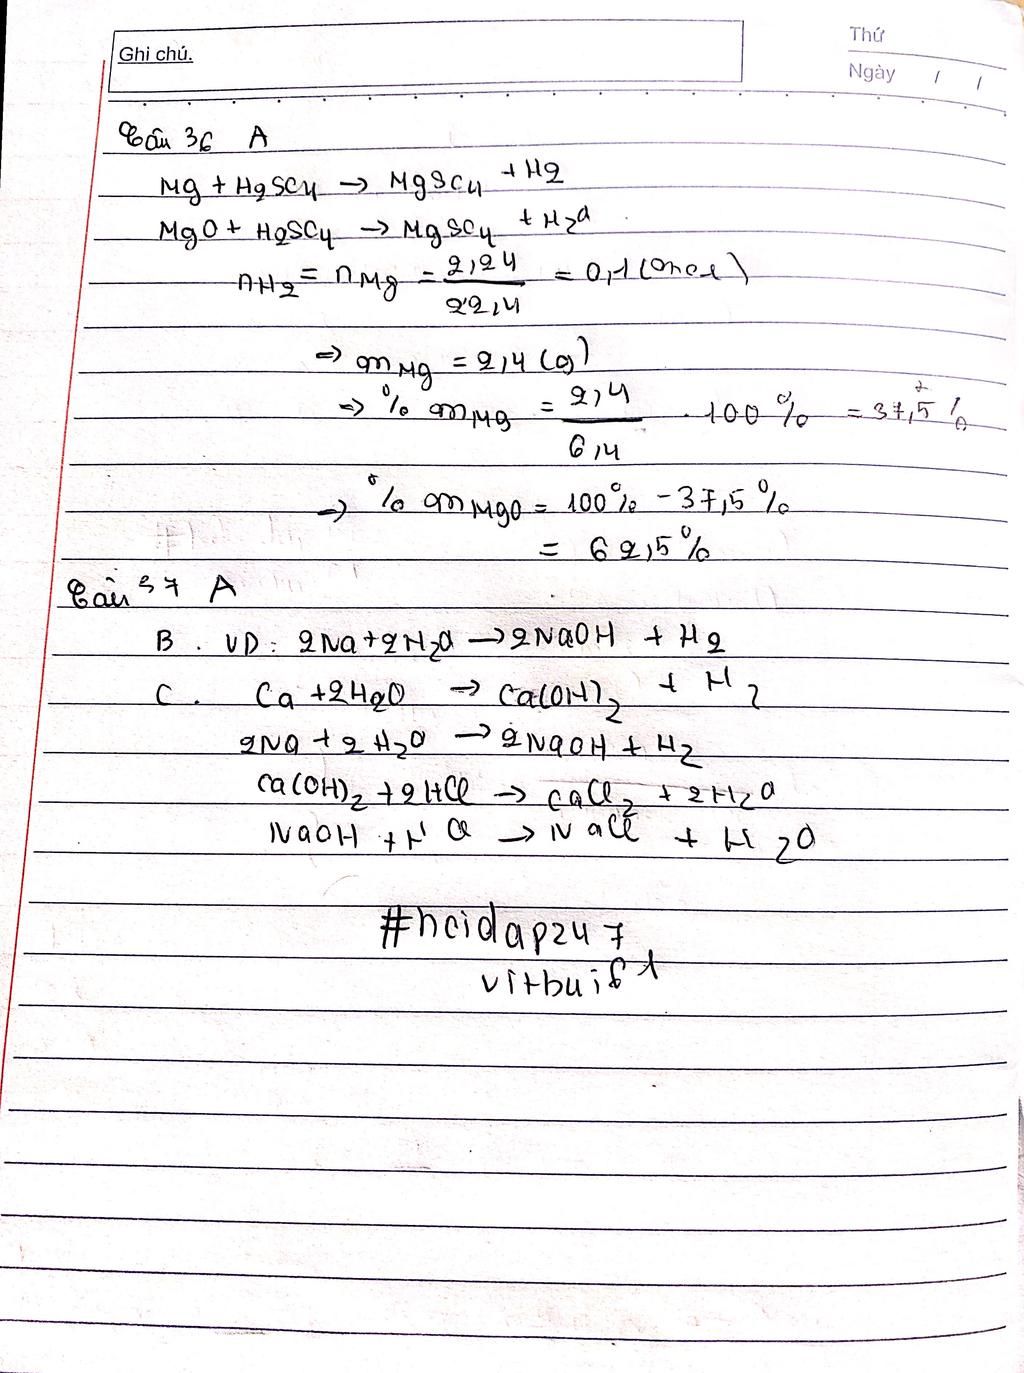 Ghi chú.
Thứ
Ngày / /
Câu 36 A
Mg + H2SO4 → MgSO4 + H2
MgO + H2SO4 → MgSO4 + H2O
nH2 = nMg = 2,24 / 22,4 = 0,1 (mol)
=> mMg = 2,4 (g)
=> % mMg = 2,4 / 6,4 . 100% = 37,5%
=> % mMgO = 100% - 37,5%
= 62,5%
Câu 37 A
B. VD: 2Na + 2H2O → 2NaOH + H2
C. Ca + 2H2O → Ca(OH)2 + H2
2Na + 2H2O → 2NaOH + H2
Ca(OH)2 + 2HCl → CaCl2 + 2H2O
NaOH + HCl → NaCl + H2O
#hoidap247